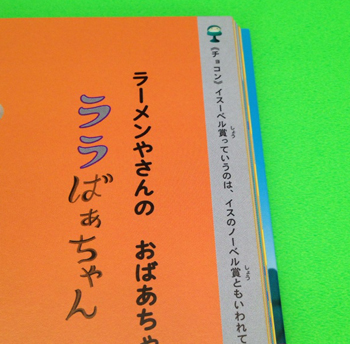 《チョコン》イスーベル賞っていうのは、イスのノーベル賞ともいわれて
ラーメンやさんの おばあちゃ
ララばぁちゃん